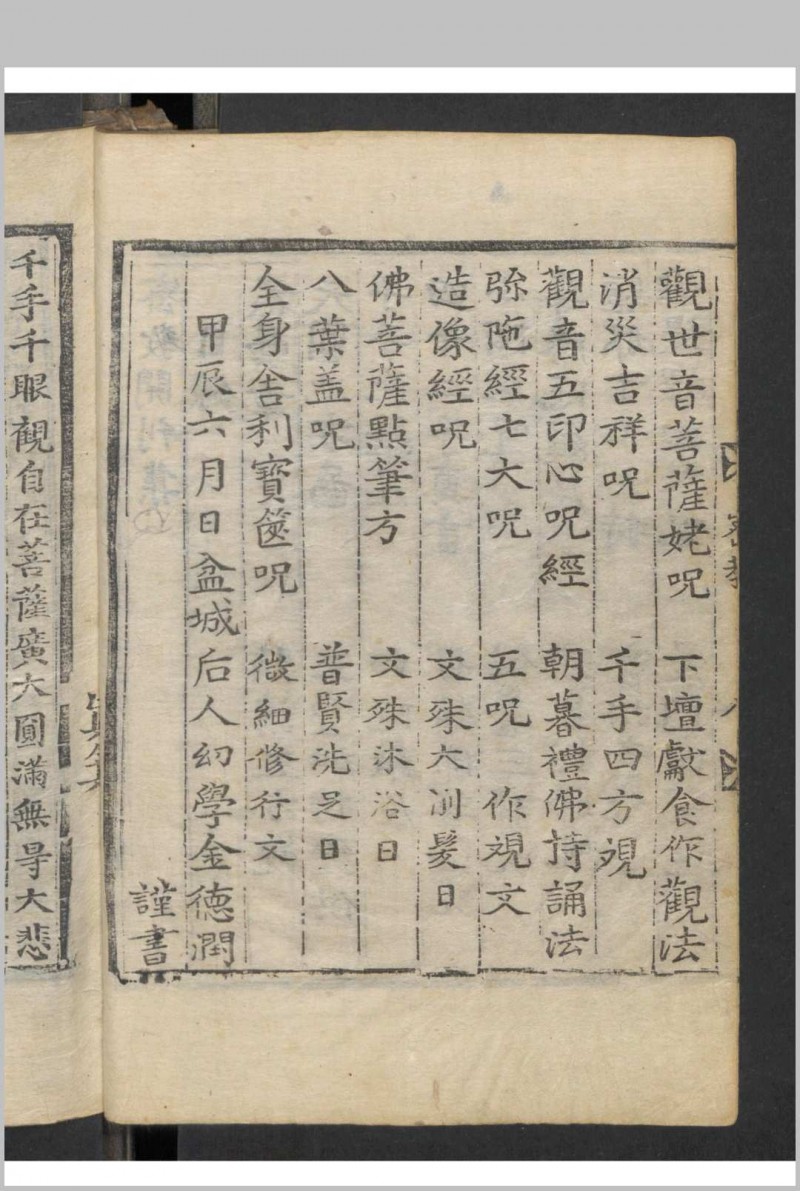 觀世音菩薩姥呪　下壇獻食作觀法
消災吉祥呪　千手四方觀
觀音五印心呪經　朝暮禮佛持誦法
弥陁經七大呪　五呪　作規文
造像經呪　文殊大削髮日
佛菩薩點筆方　文殊沐浴日
八葉盖呪　普賢洗足日
全身舍利寶篋呪　微細修行文
甲辰六月日盆城后人幻學金德潤
謹書
千手千眼觀自在菩薩廣大圓滿無㝵大悲